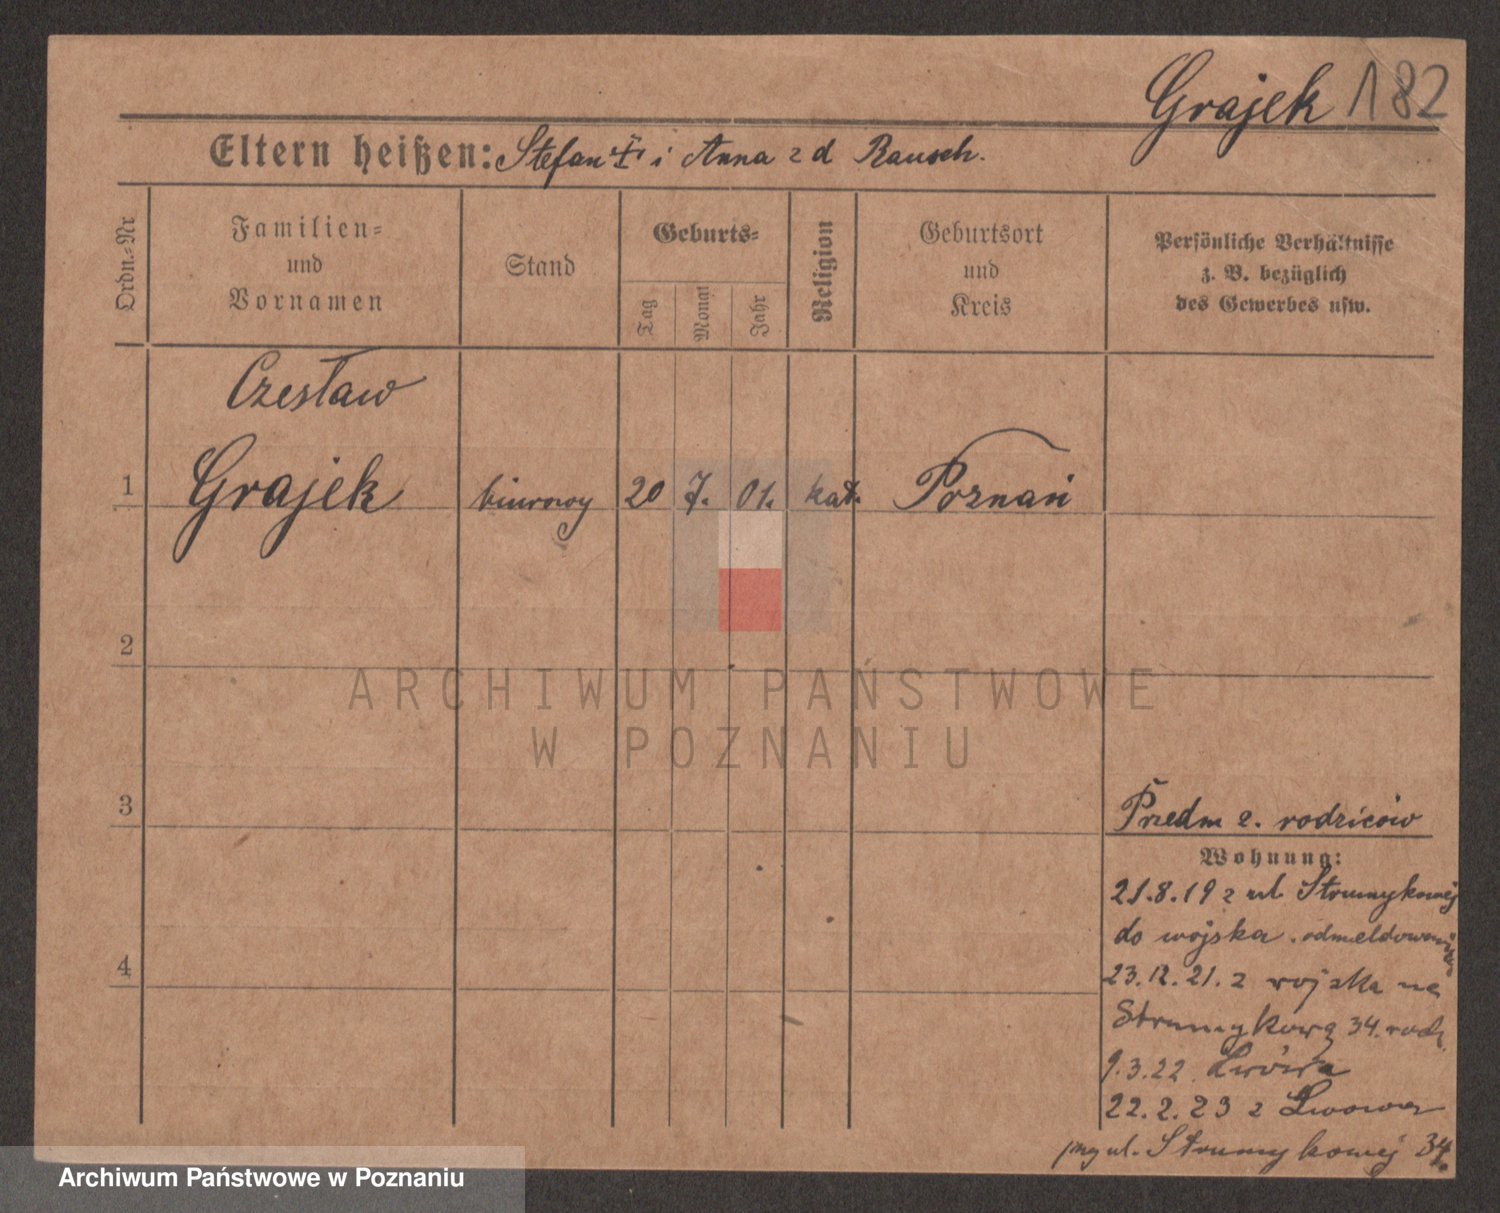 Grajek 182
Eltern heißen: Stefan i Anna z d Rausch.
Ordn.-Nr
Familien-
und
Vornamen
Stand
Geburts-
Tag
Monat
Jahr
Religion
Geburtsort
und
Kreis
Persönliche Verhältnisse
z. B. bezüglich
des Gewerbes usw.
Czesław
1 Grajek biurowy 20 7. 01. kat. Poznań
2
3
4
Przedm z. rodziców
Wohnung:
21.8.19 z ul. Strumykowej
do wojska odmeldowany
23.12.21. z wojska na
Strumykową 34. rodz.
9.3.22. Lwówka
22.2.23 z Lwowa
przy ul. Strumykowej 34.
ARCHIWUM PAŃSTWOWE
W POZNANIU
Archiwum Państwowe w Poznaniu